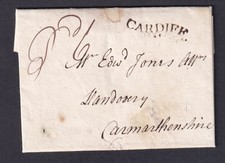 CARDIFF
Mr Edwd Jones Atty
Landovery
Carmarthenshire